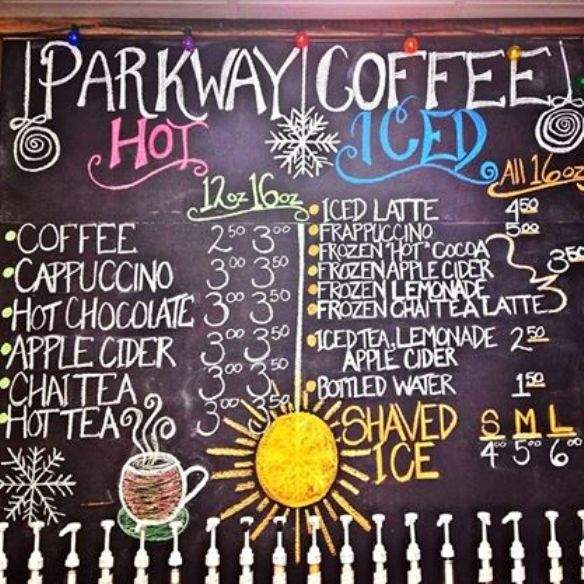 PARKWAY COFFEE
HOT
12oz 16oz
COFFEE 2.50 3.00
CAPPUCCINO 3.00 3.50
HOT CHOCOLATE 3.00 3.50
APPLE CIDER 3.00 3.50
CHAI TEA 3.00 3.50
HOT TEA 3.00 3.50
ICED
All 16oz
ICED LATTE 4.50
FRAPPUCCINO 5.00
FROZEN "HOT" COCOA
FROZEN APPLE CIDER 3.50
FROZEN LEMONADE
FROZEN CHAI TEA LATTE
ICED TEA, LEMONADE 2.50
APPLE CIDER
BOTTLED WATER 1.50
SHAVED S M L
ICE 4.00 5.00 6.00